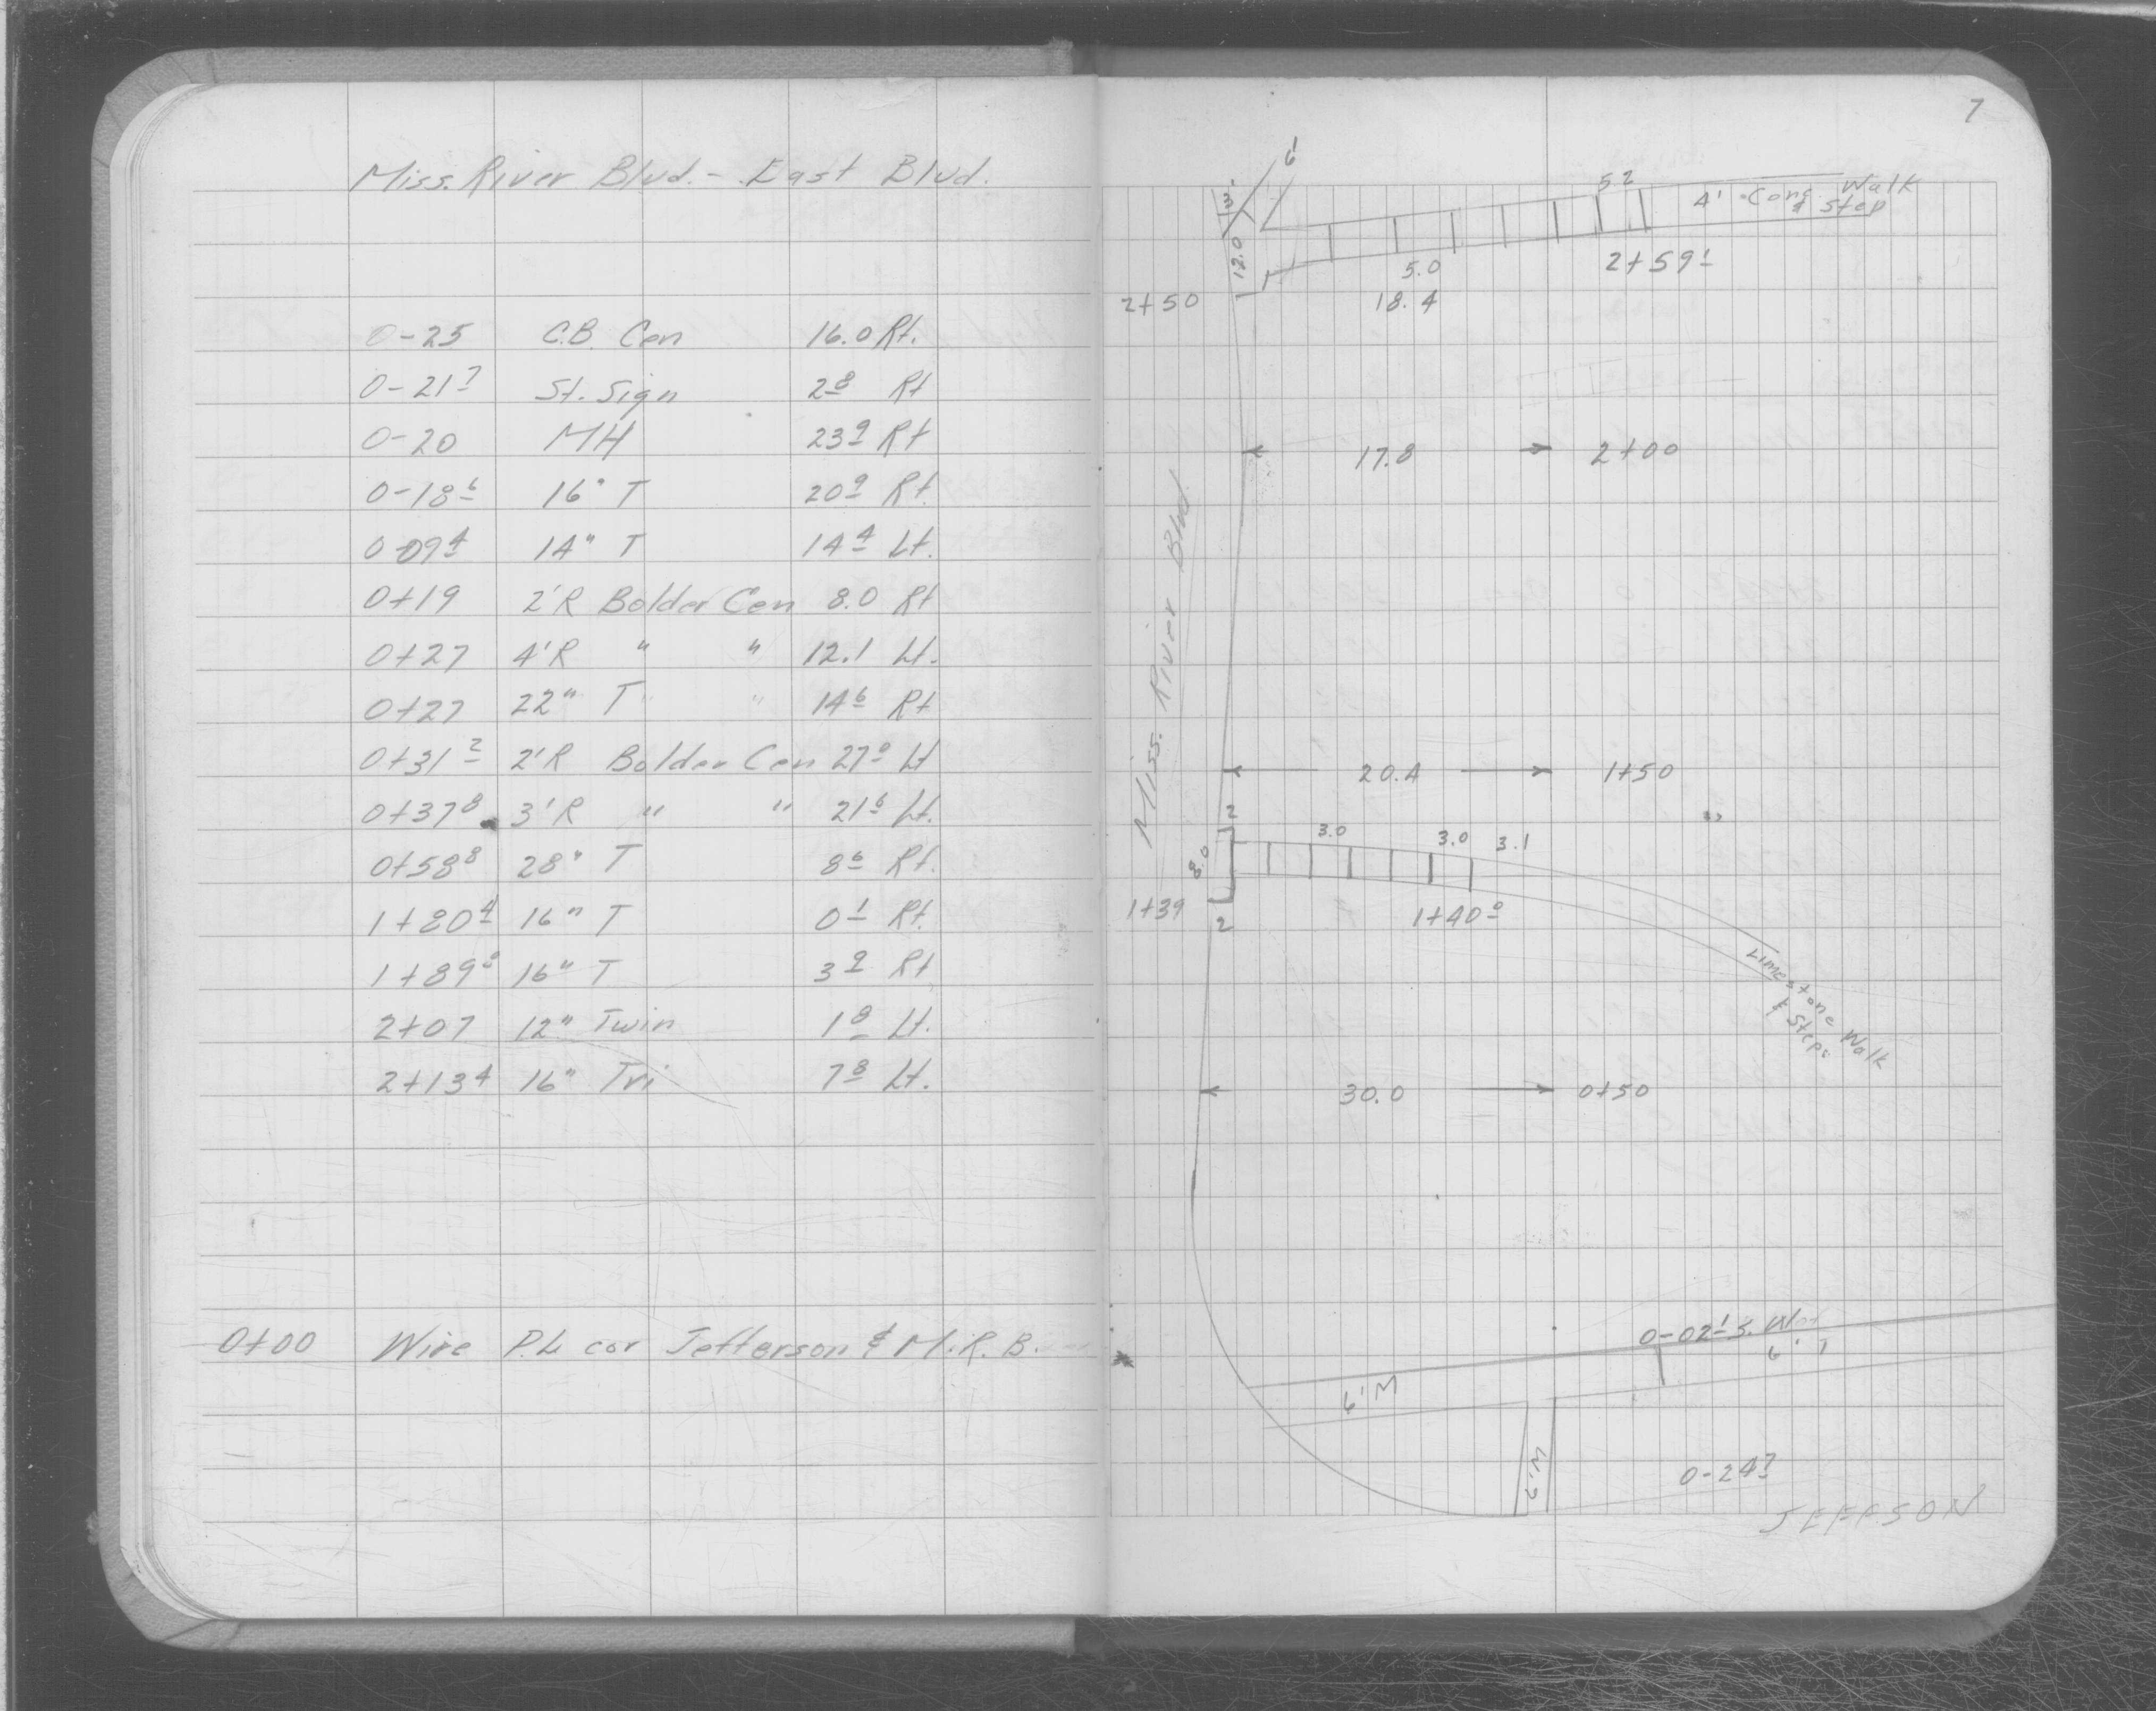 Miss. River Blvd. - East Blvd.
0-25 C.B. Cen 16.0 Rt.
0-21 7 St. Sign 2 8 Rt
0-20 MH 23 9 Rt
0-18 6 16" T 20 9 Rt.
0-09 4 14" T 14 4 Lt.
0+19 2'R Bolder Cen 8.0 Rt
0+27 4'R " " 12.1 Lt.
0+27 22" T " " 14 6 Rt
0+31 2 2'R Bolder Cen 27 0 Lt
0+37 8 3'R " " 21 6 Lt.
0+58 8 28" T 8 6 Rt.
1+80 4 16" T 0 1 Rt.
1+89 8 16" T 3 9 Rt
2+07 12" Twin 1 8 Lt.
2+13 4 16" Tri 7 8 Lt.
0+00 Wire P.L cor Jefferson & M.R.B.
7
6'
3'
5.2
4' Conc Walk
& Step
12.0
5.0
2+59 1
2+50
18.4
17.8 2+00
Miss. River Blvd.
20.4 1+50
2
3.0 3.0 3.1
8.0
1+39
2
1+40 0
Limestone Walk
& Steps
30.0 0+50
0-02 1 S.
6'
6' M
6' M
0-24 7
JEFFSON